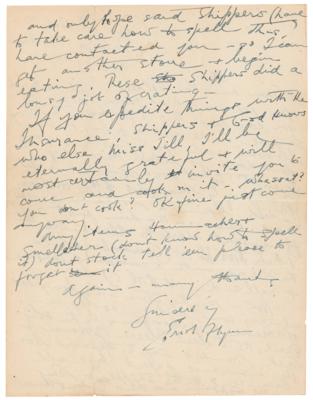 and only hope said Shippers (have
to take care how to spell this)
have contacted you — so I can
get another stove & begin
eating. These Shippers did a
lousy job of crating —
If you expedite things with the
Insurance, Shippers & God knows
who else Miss Till, I'll be
eternally grateful & will
most certainly invite you to
come and cook on it. Whassat?
you dont cook? OK fine just come
anyway.
Any items
(dont know how to spell
it) dont stock tell 'em please to
forget it
Again — many thanks
Sincerely
Errol Flynn